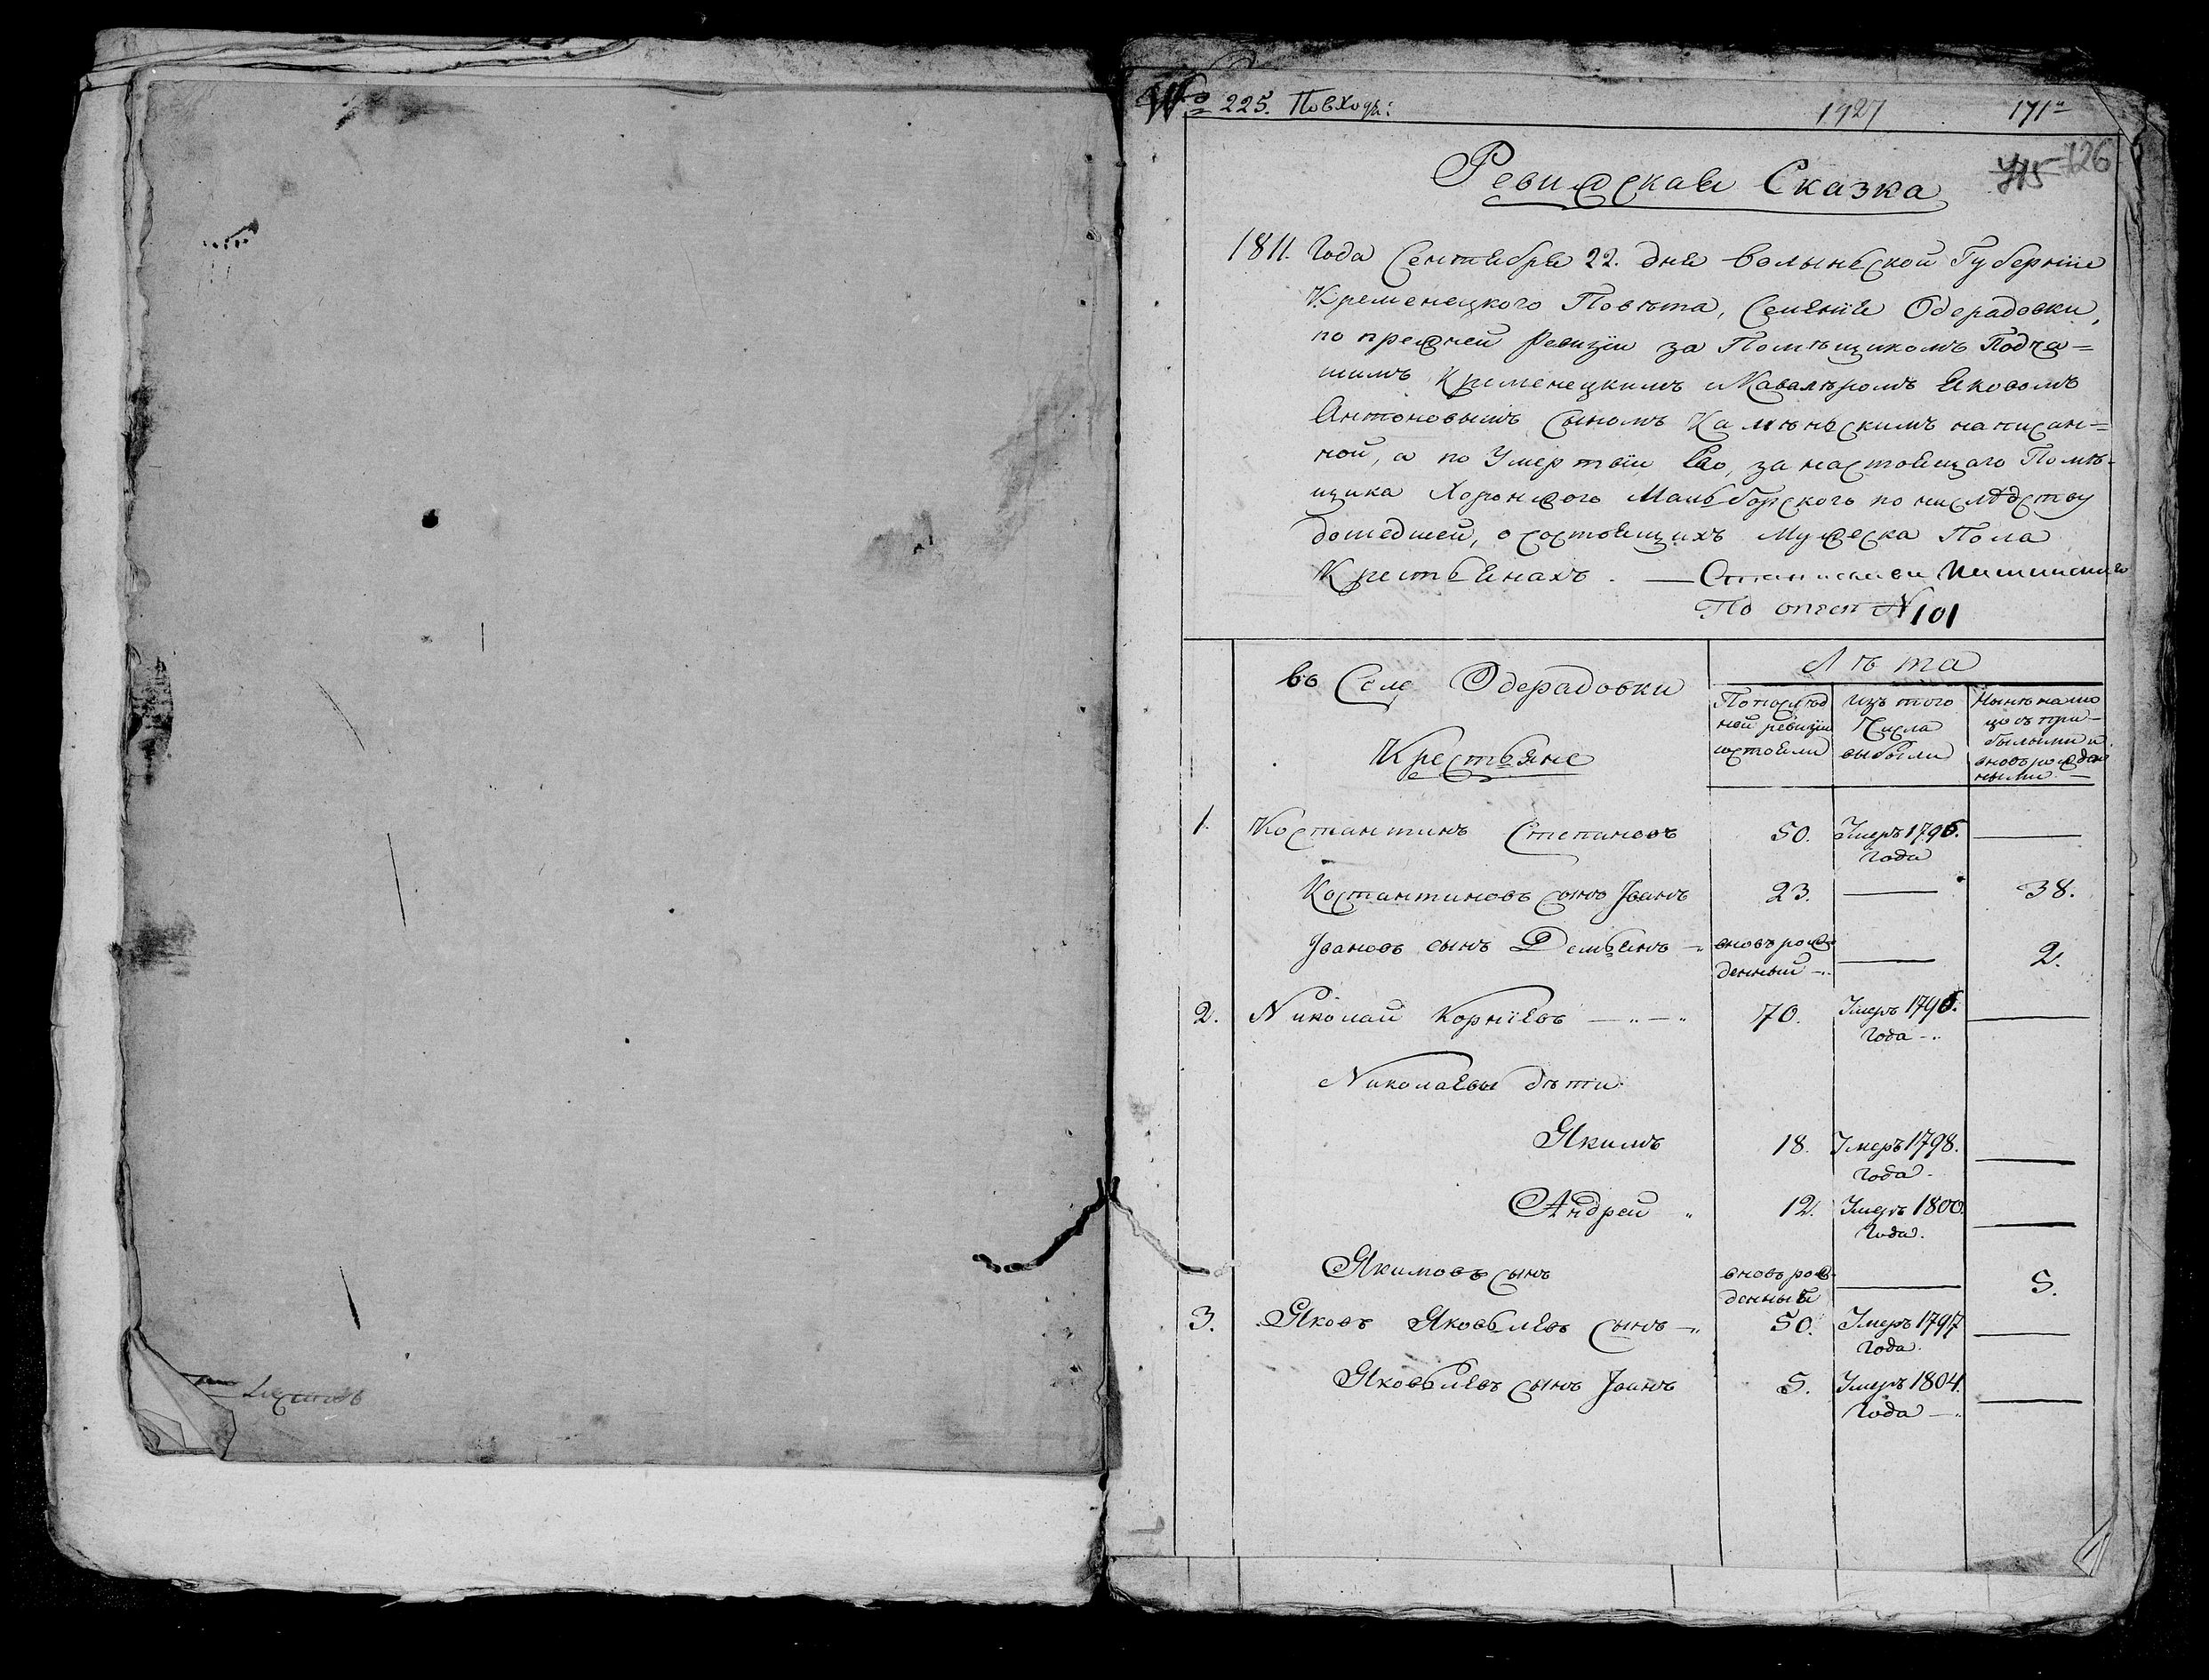 № 225. По входѣ:
1927
171
715 726
Ревижская Сказка
1811. Года Сентября 22. дня Волынской Губернiи
Кременецкого Повѣта, Селенiя Одерадовки,
по прежней Ревизiи за Помѣщикомъ Подча=
шимъ Кременецкимъ и Кавалѣромъ Яковомъ
Антоновымъ Сыномъ написан=
ной, а по Умертвiи Его, за настоящаго Помѣ-
щика Хоронжого по наслѣдству
дошедшей, о состоящихъ Мужеска Пола
Крестьянахъ. —
По описи N 101
Въ Селе Одерадовки
Крестьяне
Лѣта
По послѣд
ной ревизiи
состояли
Изъ того
Числа
выбыли
Нынѣ на лицо
съ при-
былыми и
вновь рожден
ными. —
1. Костантинъ Степановъ 50. Умеръ 1796. Года —
Костантиновъ сынъ Iванъ 23. — 38.
Iвановъ сынъ Демьянъ вновь рожденный — 2.
2. Николай Корнiевъ 70. Умеръ 1796. Года —
Николаевы дѣти
Якимъ 18. Умеръ 1798. Года —
Андрей 12. Умеръ 1800. Года. —
Якимовъ сынъ вновь рожденный — 5.
3. Яковъ Яковьлевъ Сынъ 50. Умеръ 1797 Года. —
Яковьлевъ сынъ Iванъ 5. Умеръ 1804. Года —